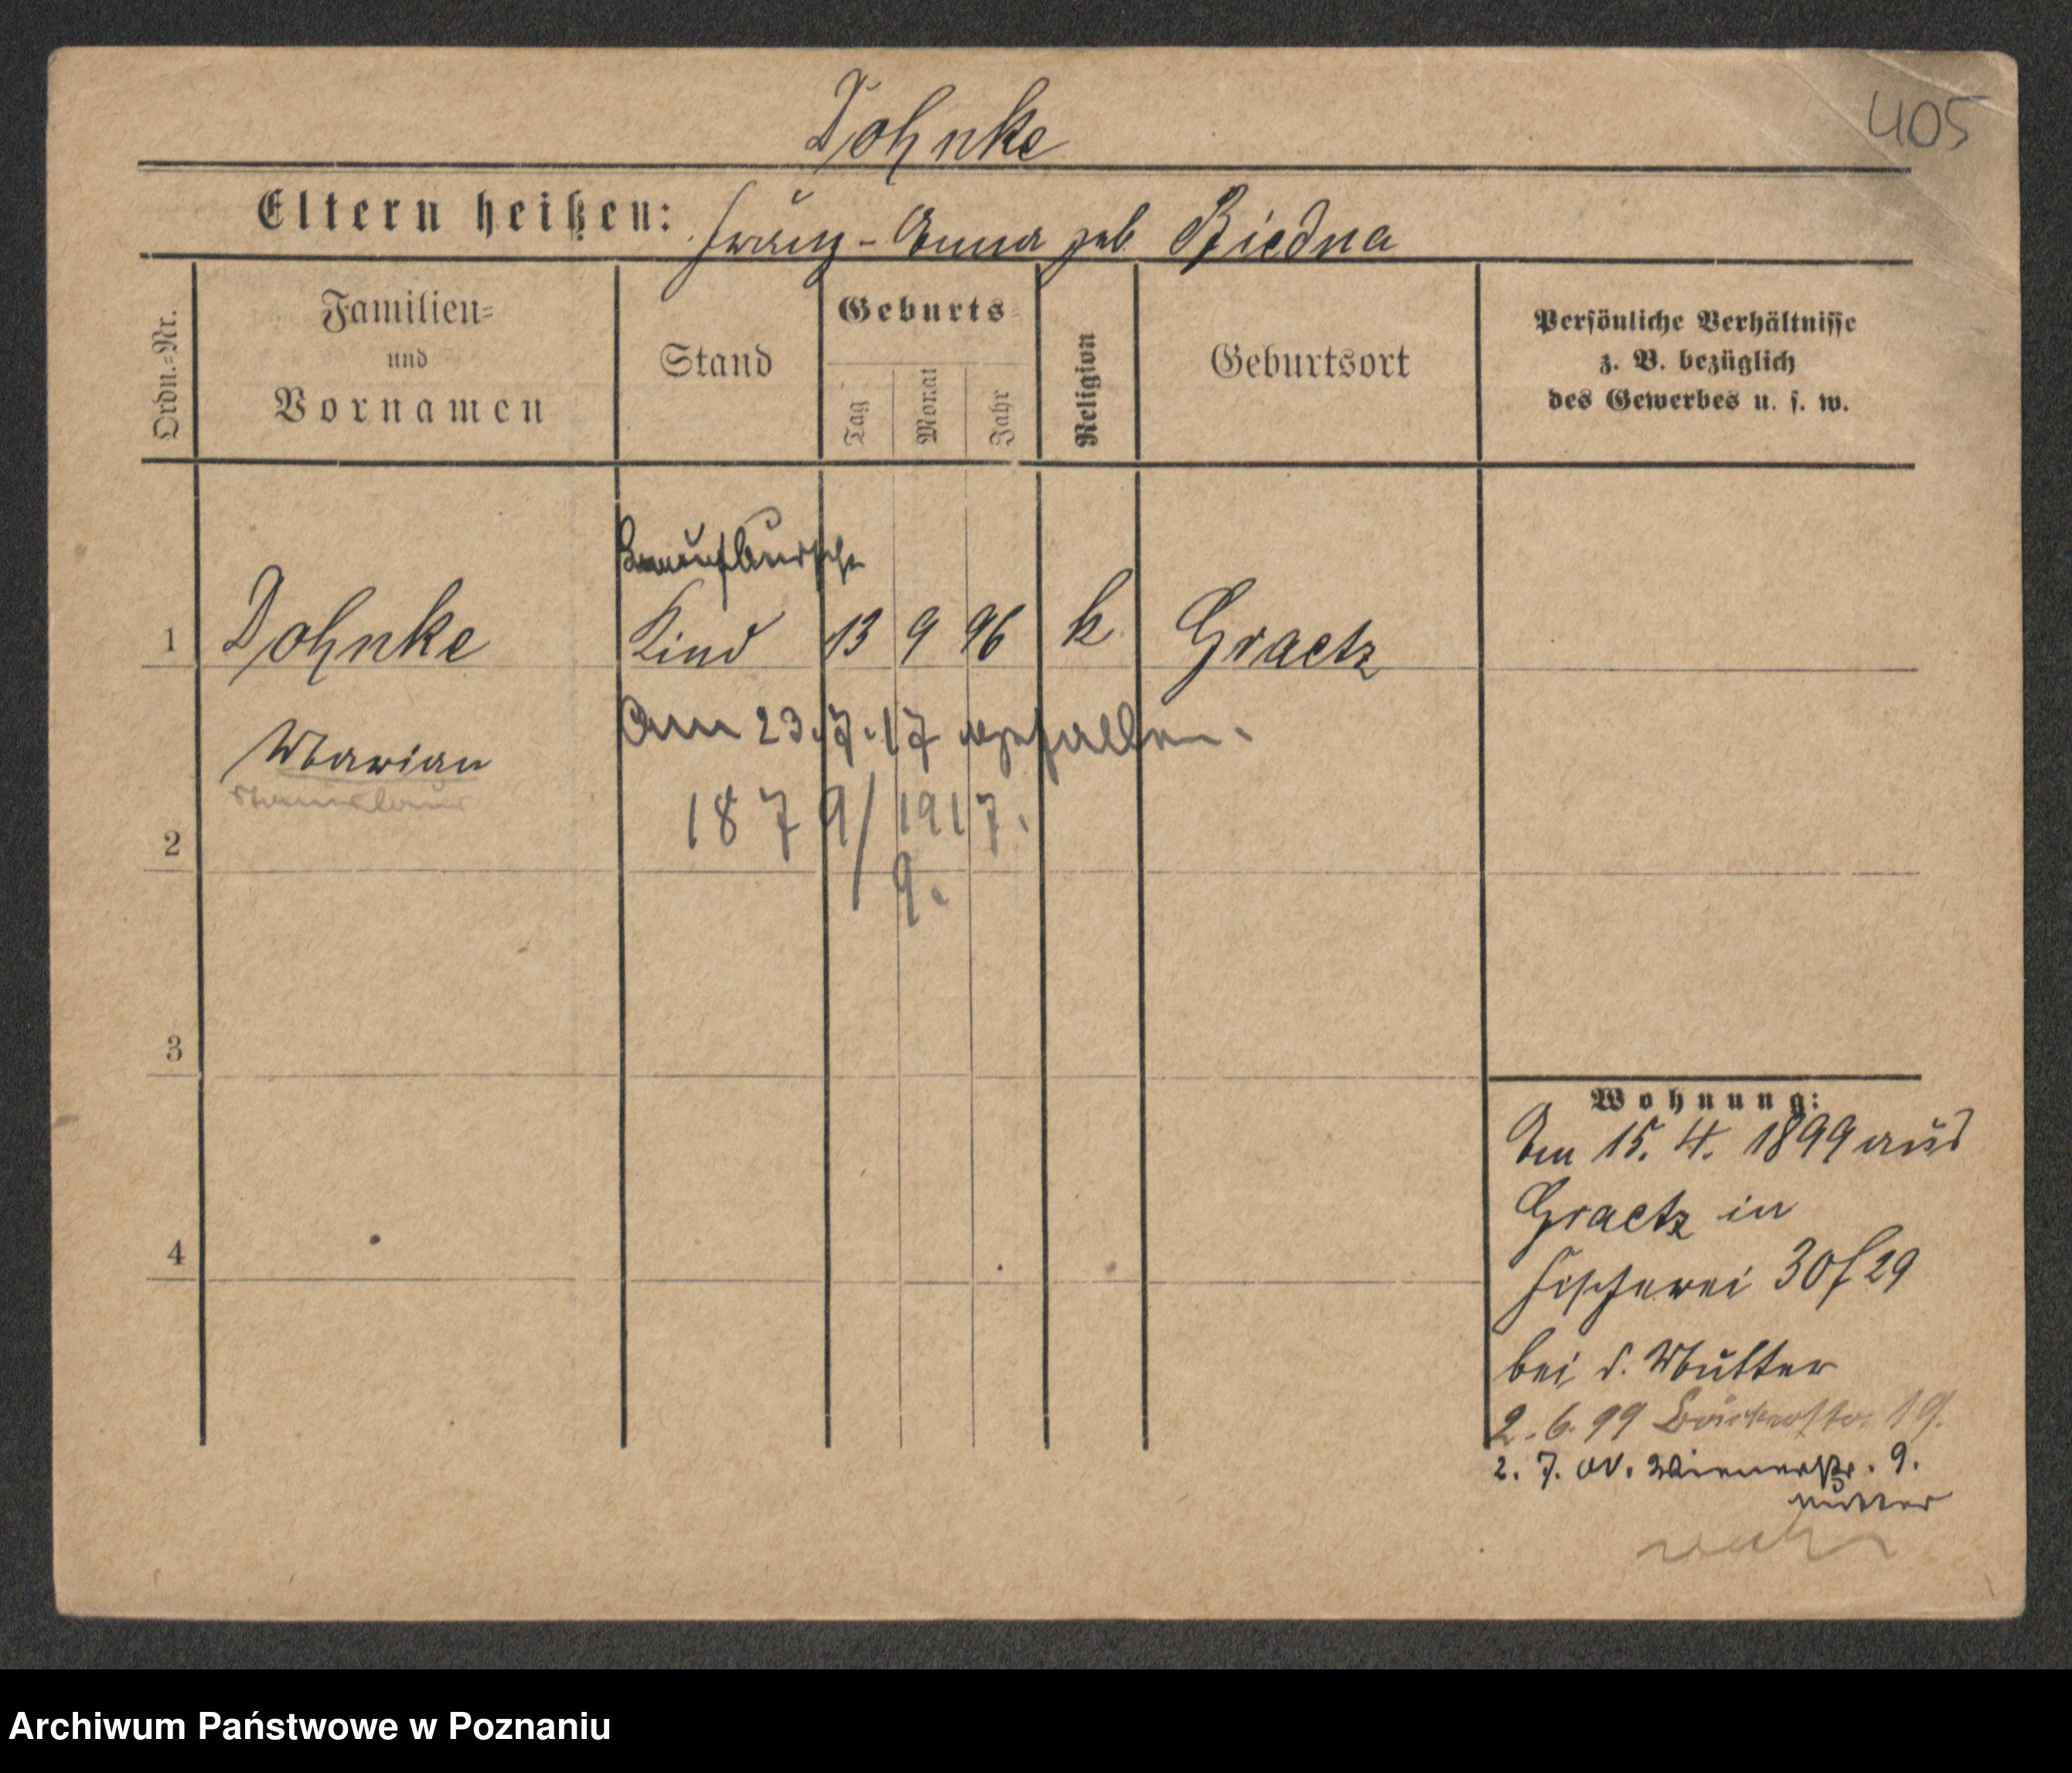 Dohnke
405
Eltern heißen: Franz - Anna geb. Biedna
Ordn.=Nr.
Familien=
und
Vornamen
Stand
Geburts=
Tag
Monat
Jahr
Religion
Geburtsort
Persönliche Verhältnisse
z. B. bezüglich
des Gewerbes u. s. w.
1 Dohnke Kind 13 9 96 k Graetz
Marian
Stanislaus
Am 23.7.17 gefallen.
1879/1917.
9.
2
3
4
Wohnung:
Am 15. 4. 1899 aus
Graetz in
Fischerei 30 f 29
bei d. Mutter
2. 6. 99 Bäckerstr. 19.
2. 7. 00. Wienerstr. 9.
Mutter
Archiwum Państwowe w Poznaniu